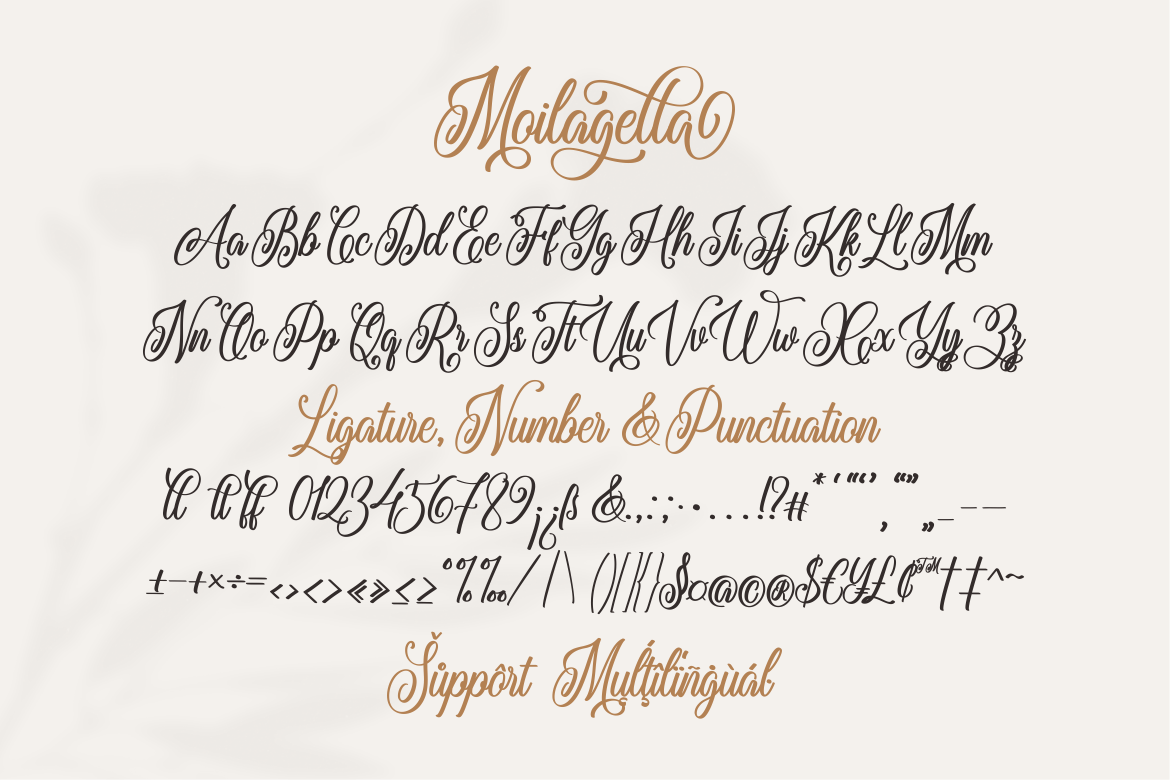 Moilagella
Aa Bb Cc Dd Ee Ff Gg Hh Ii Jj Kk Ll Mm
Nn Oo Pp Qq Rr Ss Tt Uu Vv Ww Xx Yy Zz
Ligature, Number & Punctuation
ll tt ff 0123456789¡¿ß &.,:;·•. . . .!?#*'"“‘’ “” , „_ – —
±−+×÷=‹›<>«»≤≥°%‰/|\()[]{}§¤@©®$€¥£¢™†‡^~
Šůppôrt Mųļţîlïñġùáŀ